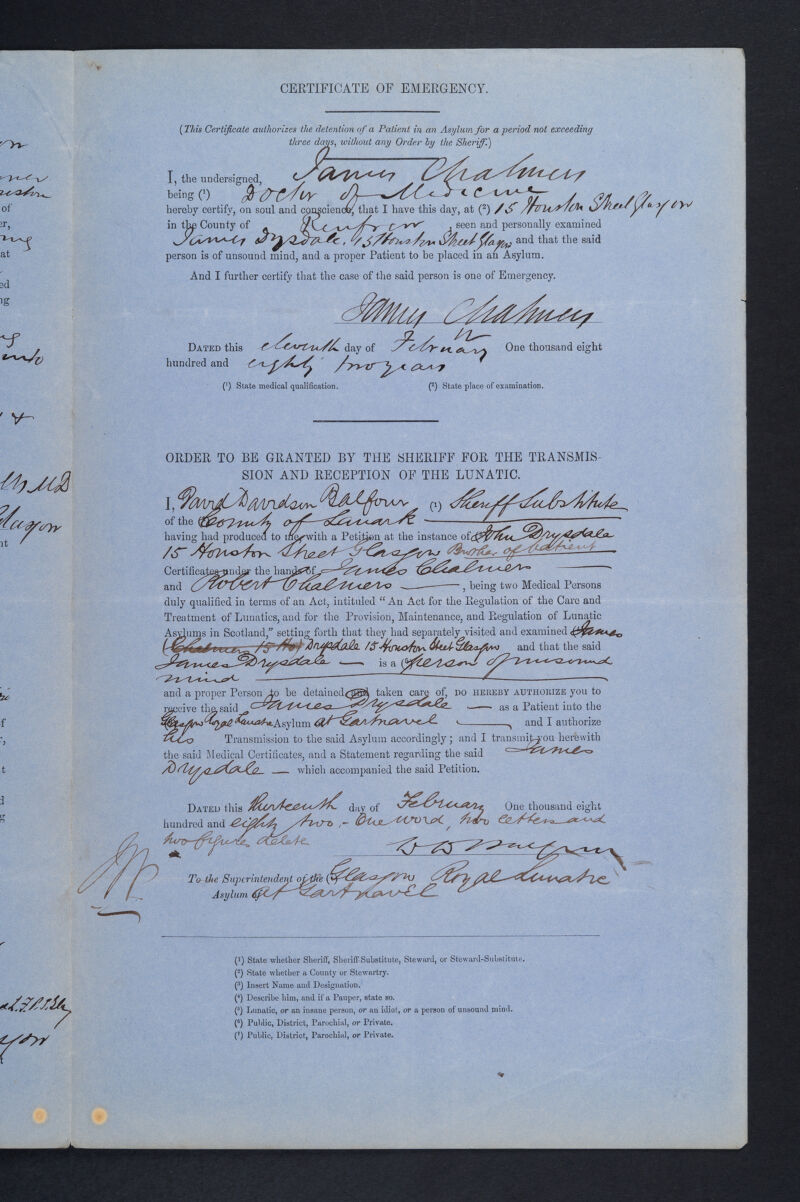 CERTIFICATE OF EMERGENCY.
(This Certificate authorizes the detention of a Patient in an Asylum for a period not exceeding
three days, without any Order by the Sheriff.)
I, the undersigned, James Chalmers
being (1) Doctor of Medicine
hereby certify, on soul and conscience, that I have this day, at (2) 15 Houston Street Glasgow
in the County of Renfrew, seen and personally examined
James Drysdale. 15 Houston Street Glasgow and that the said
person is of unsound mind, and a proper Patient to be placed in an Asylum.
And I further certify that the case of the said person is one of Emergency.
James Chalmers
DATED this eleventh day of February One thousand eight
hundred and eighty two years
(1) State medical qualification. (2) State place of examination.
ORDER TO BE GRANTED BY THE SHERIFF FOR THE TRANSMIS-
SION AND RECEPTION OF THE LUNATIC.
I, David Davidson Balfour (1) Sheriff Substitute
of the County of Lanark
having had produced to me with a Petition at the instance of John Drysdale
15 Houston Street Glasgow Brother of patient
Certificates under the hands of James Chalmers
and Robert Chalmers, being two Medical Persons
duly qualified in terms of an Act, intituled "An Act for the Regulation of the Care and
Treatment of Lunatics, and for the Provision, Maintenance, and Regulation of Lunatic
Asylums in Scotland," setting forth that they had separately visited and examined James
Chalmers 15 Ho Drysdale 15 Houston Street Glasgow and that the said
James Drysdale is a person of unsound
mind
and a proper Person to be detained and taken care of, DO HEREBY AUTHORIZE you to
receive the said James Drysdale as a Patient into the
Glasgow Royal Lunatic Asylum at Gartnavel and I authorize
his Transmission to the said Asylum accordingly; and I transmit you herewith
the said Medical Certificates, and a Statement regarding the said James
Drysdale which accompanied the said Petition.
DATED this thirteenth day of February One thousand eight
hundred and eighty two,- One word, two letters and
two figures delete
To the Superintendent of the Glasgow Royal Lunatic
Asylum at Gartnavel
(1) State whether Sheriff, Sheriff-Substitute, Steward, or Steward-Substitute.
(2) State whether a County or Stewartry.
(3) Insert Name and Designation.
(4) Describe him, and if a Pauper, state so.
(5) Lunatic, or an insane person, or an idiot, or a person of unsound mind.
(6) Public, District, Parochial, or Private.
(7) Public, District, Parochial, or Private.